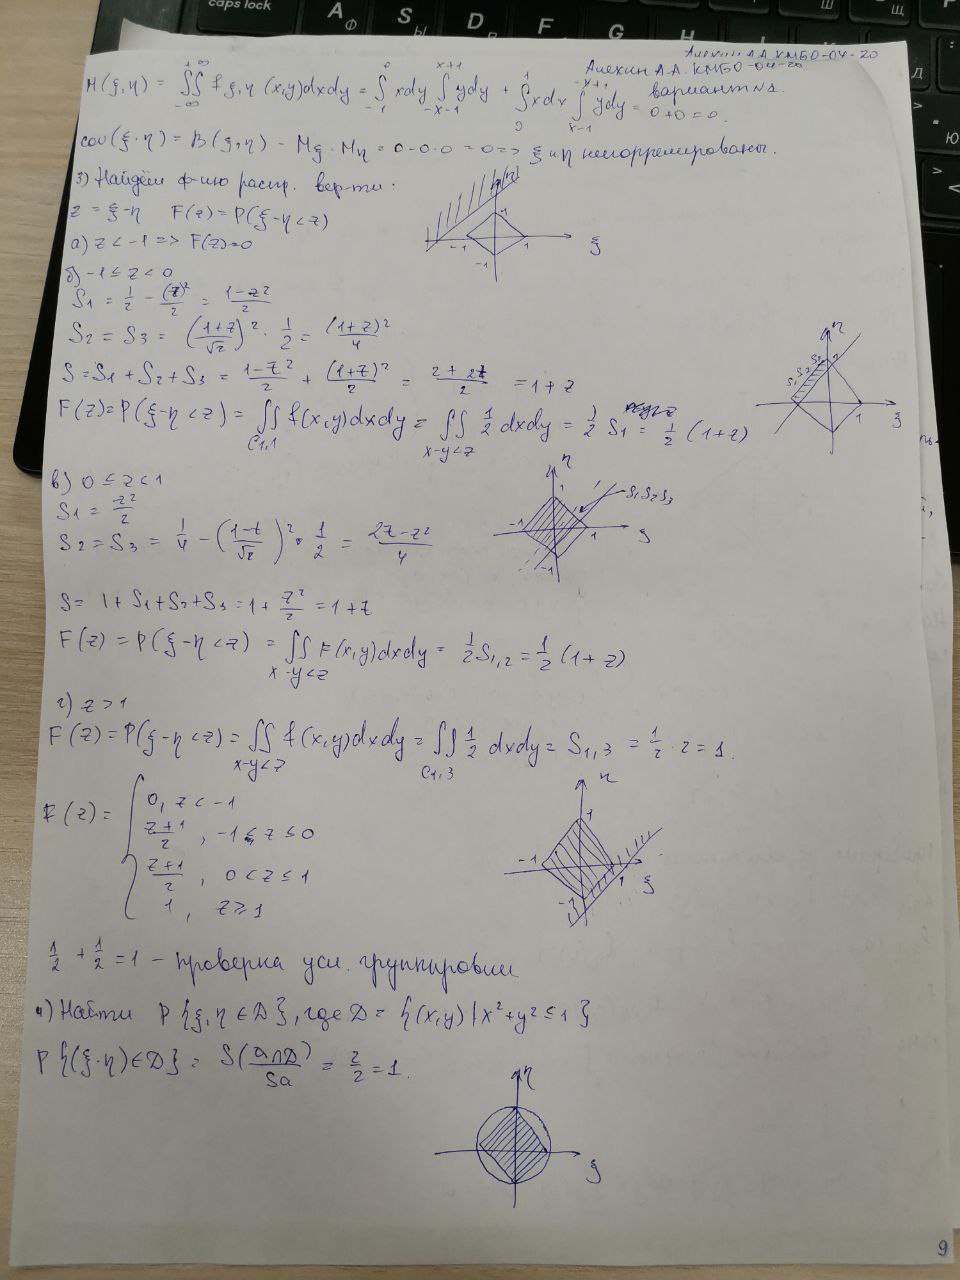 caps lock
A Ф
S Ы
D
F
G
H
Алехин А.А. КМБО-04-20
Алехин А.А. КМБО-04-20
вариант №1.
M(ξ,η) = ∫∫ f ξ,η (x,y)dxdy = ∫ xdy ∫ ydy + ∫ xdx ∫ ydy = 0+0=0.
cov(ξ·η) = B(ξ,η) - Mξ·Mη = 0-0·0 = 0 => ξ и η некоррелированы.
3) Найдём ф-ию распр. вер-ти:
z = ξ-η F(z) = P(ξ-η<z)
а) z < -1 => F(z)=0
б) -1 ≤ z < 0
S1 = 1/2 - (z)²/2 = (1-z²)/2
S2 = S3 = ((1+z)/√2)² · 1/2 = (1+z)²/4
S = S1 + S2 + S3 = (1-z²)/2 + (1+z)²/2 = (2+2z)/2 = 1+z
F(z)=P(ξ-η<z) = ∫∫ f(x,y)dxdy = ∫∫ 1/2 dxdy = 1/2 S1 = 1/2 (1+z)
C1,1 x-y<z
в) 0 ≤ z < 1
S1 = z²/2
S2 = S3 = 1/4 - ((1-z)/√2)² · 1/2 = (2z-z²)/4
S = 1+S1+S2+S3 = 1+ z²/2 = 1+z
F(z) = P(ξ-η<z) = ∫∫ F(x,y)dxdy = 1/2 S1,2 = 1/2 (1+z)
x-y<z
г) z > 1
F(z) = P(ξ-η<z) = ∫∫ f(x,y)dxdy = ∫∫ 1/2 dxdy = S1,3 = 1/2 · 2 = 1.
x-y<z C1,3
F(z) = { 0, z < -1
(z+1)/2 , -1 ≤ z ≤ 0
(z+1)/2 , 0 < z ≤ 1
1 , z ≥ 1
1/2 + 1/2 = 1 - проверка усл. группировки
4) Найти P{ξ,η ∈ D}, где D = {(x,y) | x²+y² ≤ 1}
P{(ξ·η)∈D} = S(a∩D)/Sa = 2/2 = 1.
η
ξ
1
-1
-1
η
S1 S2 S3
1
1
ξ
η
1
-1
S1 S2 S3
1
-1
ξ
η
1
-1
1
-1
ξ
η
ξ
9